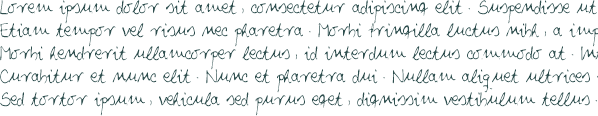 Lorem ipsum dolor sit amet, consectetur adipiscing elit. Suspendisse ut
Etiam tempor vel risus nec pharetra. Morbi fringilla luctus nibh, a imp
Morbi hendrerit ullamcorper lectus, id interdum lectus commodo at. In
Curabitur et nunc elit. Nunc et pharetra dui. Nullam aliquet ultrices.
Sed tortor ipsum, vehicula sed purus eget, dignissim vestibulum tellus.